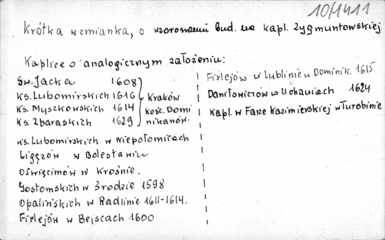 10/1411
Krótka wzmianka, o wzorowaniu bud. na kapl. Zygmuntowskiej
Kaplice o analogicznym założeniu:
Św. Jacka 1608
Ks. Lubomirskich 1616
Ks. Myszkowskich 1614
Ks. Zbaraskich 1629
Kraków
kość. Domi
nikanów.
Ks. Lubomirskich w Niepołomicach
Ligęzów w Bolestawiu
Oświęcimów w Krośnie.
Gostomskich w Środzie 1598
Opalińskich w Radlinie 1611-1614.
Firlejów w Bejscach 1600
Firlejów w Lublinie u Dominik. 1615
Daniłowiczów w Uchaniach 1624
Kapl. w Farze Kazimierskiej w Turobinie